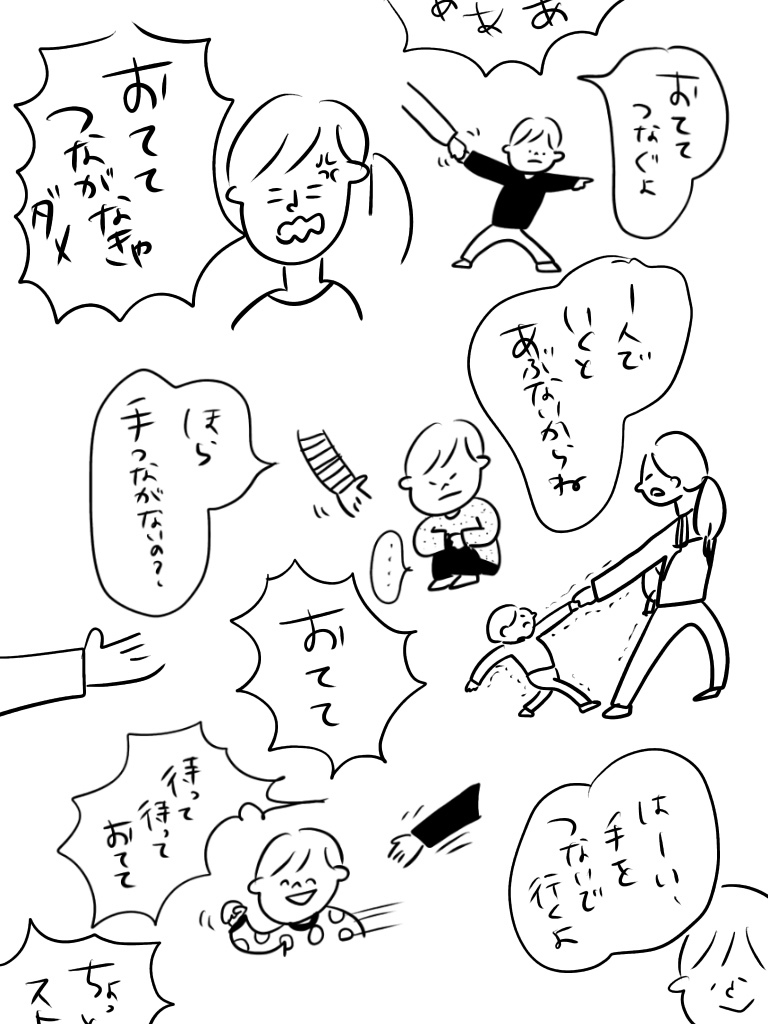 あああ
おてて
つなぐよ
おてて
つながなきゃ
ダメ
1人で
いくと
あぶないからね
ほら
手つながないの?、
・・・・・
おてて
待って
待って
おてて
はーい、
手を
つないで
行くよ
ちょっと
スト